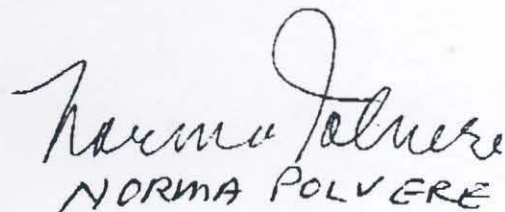 Norma Polvere
NORMA POLVERE